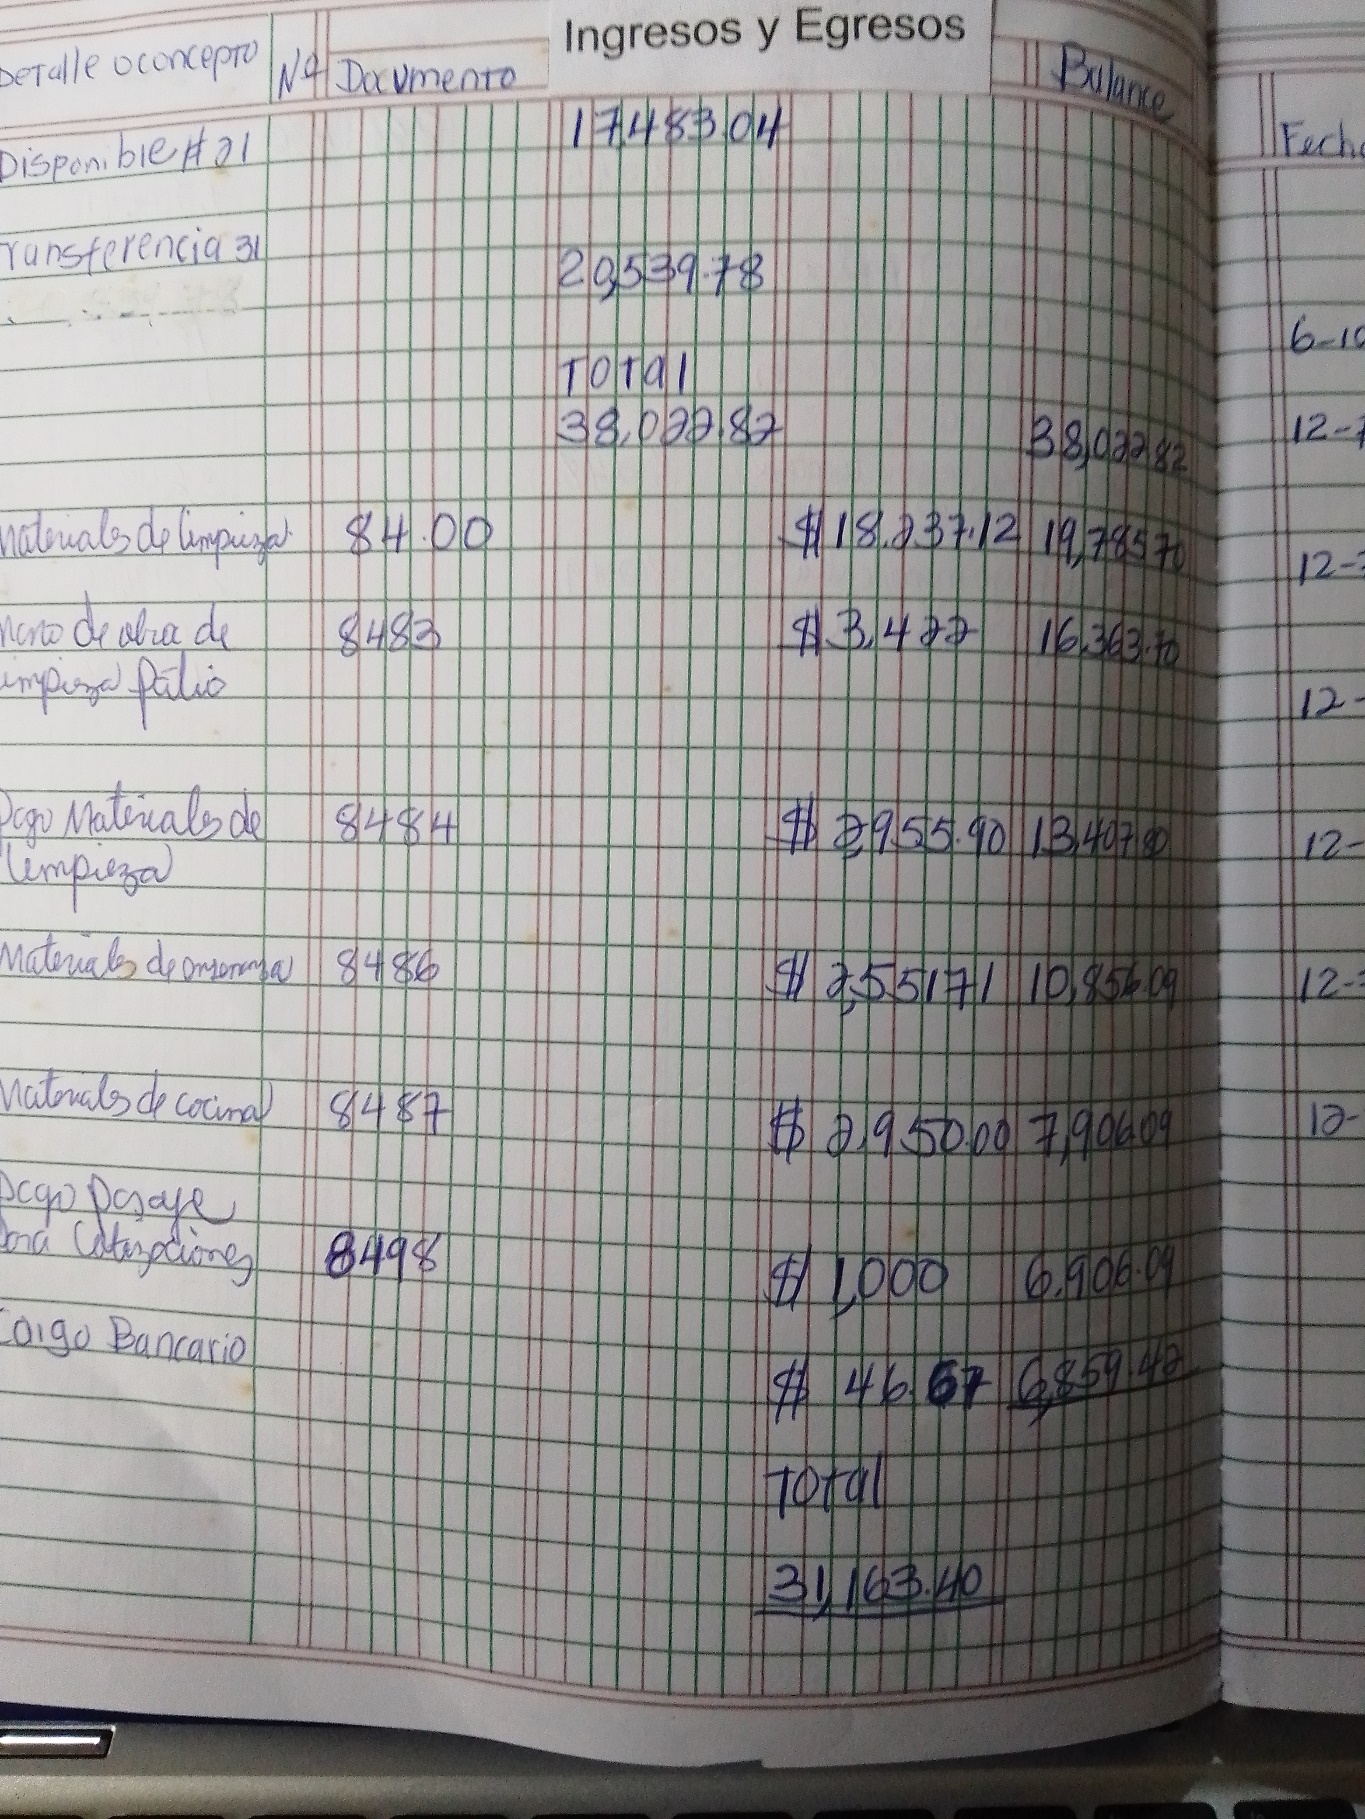 Ingresos y Egresos
Detalle o concepto Nº Documento Balance
Disponible # 21 17483.04
Transferencia 31
20,539.78
Total
38,022.82 38,022.82
Materiales de limpieza 84.00 $ 18.237.12 19,785.70
Mano de obra de 8483 $ 3,422 16,363.70
limpieza patio
Pago Materiales de 8484 $ 2,955.90 13,407.80
limpieza
Materiales de 8486 $ 2,551.71 10,856.09
Materiales de cocina 8487 $ 2,950.00 7,906.09
Pago Pasaje
para Cotizaciones 8498 $ 1,000 6,906.09
Bancario
$ 46.67 6,859.42
Total
31,163.40
Fecha
6-10
12-
12-
12-
12-
12-
12-